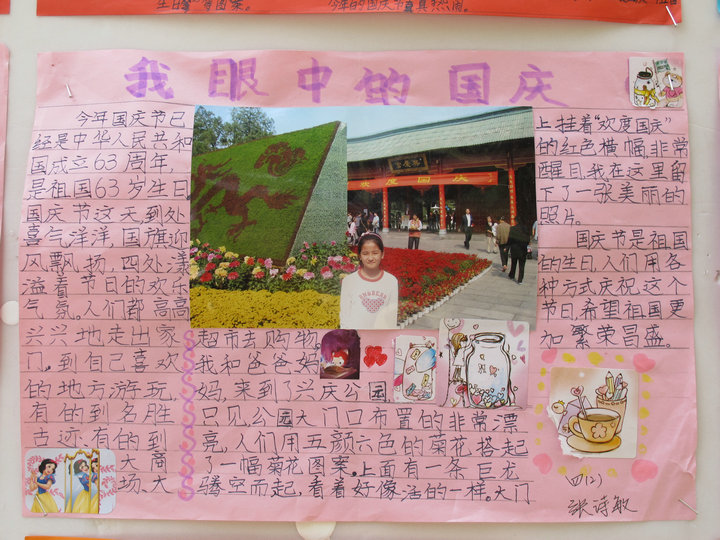 生日
图案。
今年的国庆节真真热闹。
我眼中的国庆
今年国庆节已
经是中华人民共和
国成立63周年,
是祖国63岁生日
国庆节这天到处
喜气洋洋,国旗迎
风飘扬,四处漾
溢着节日的欢乐
气氛。人们都高高
兴兴地走出家
门,到自己喜欢
的地方游玩,
有的到名胜
古迹、有的到
大商
场、大
超市去购物。
我和爸爸妈
妈,来到了兴庆公园
只见公园大门口布置的非常漂
亮,人们用五颜六色的菊花搭起
了一幅菊花图案。上面有一条巨龙
腾空而起,看着好像活的一样。大门
上挂着“欢度国庆”
的红色横幅非常
醒目,我在这里留
下了一张美丽的
照片。
国庆节是祖国
的生日,人们用各
种方式庆祝这个
节日,希望祖国更
加繁荣昌盛。
欢度国庆
四(2)
张诗敏